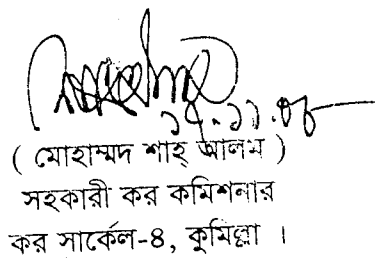 ১৭.১১.০৮
( মোহাম্মদ শাহ্ আলম )
সহকারী কর কমিশনার
কর সার্কেল-৪, কুমিল্লা ।